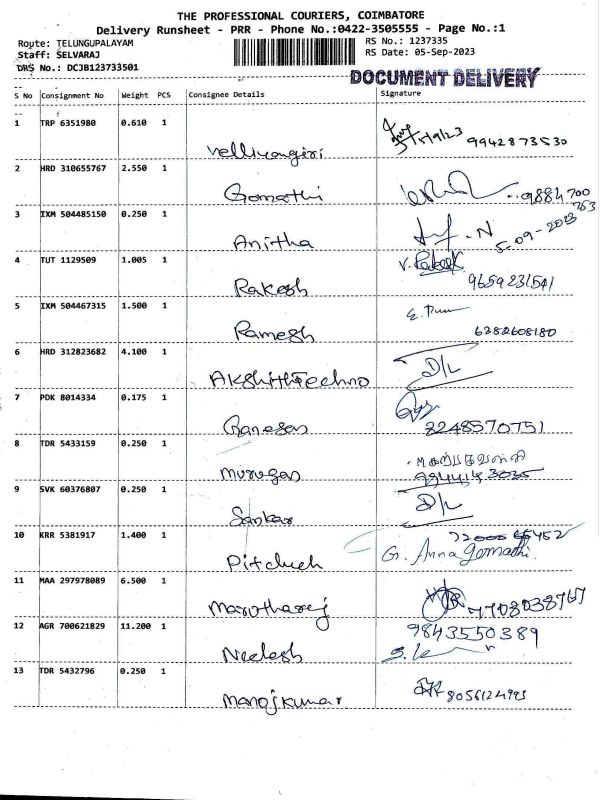 THE PROFESSIONAL COURIERS, COIMBATORE
Delivery Runsheet - PRR - Phone No.:0422-3505555 - Page No.:1
Route: TELUNGUPALAYAM
RS No.: 1237335
Staff: SELVARAJ
RS Date: 05-Sep-2023
DRS No.: DCJB123733501
DOCUMENT DELIVERY
S No Consignment No Weight PCS Consignee Details Signature
1 TRP 6351980 0.610 1
5/9/23 9942873530
Velliyangiri
2 HRD 310655767 2.550 1
Gomathi
9884700
763
3 IXM 504485150 0.250 1
Anitha
5-09-2023
4 TUT 1129509 1.005 1
V. Rakesh
Rakesh 9659231541
5 IXM 504467315 1.500 1
Ramesh 6382608180
6 HRD 312823682 4.100 1
D/L
Akshith Techno
7 PDK 8014334 0.175 1
Ganesan 8248570751
8 TDR 5433159 0.250 1
Murugan
9 SVK 60376807 0.250 1
D/L
Sankar
10 KRR 5381917 1.400 1
G. Anna Gomathi.
11 MAA 297978089 6.500 1
Marutharaj 7708038767
12 AGR 700621829 11.200 1
9843550389
Neelesh
13 TDR 5432796 0.250 1
8056124993
Manojkumar